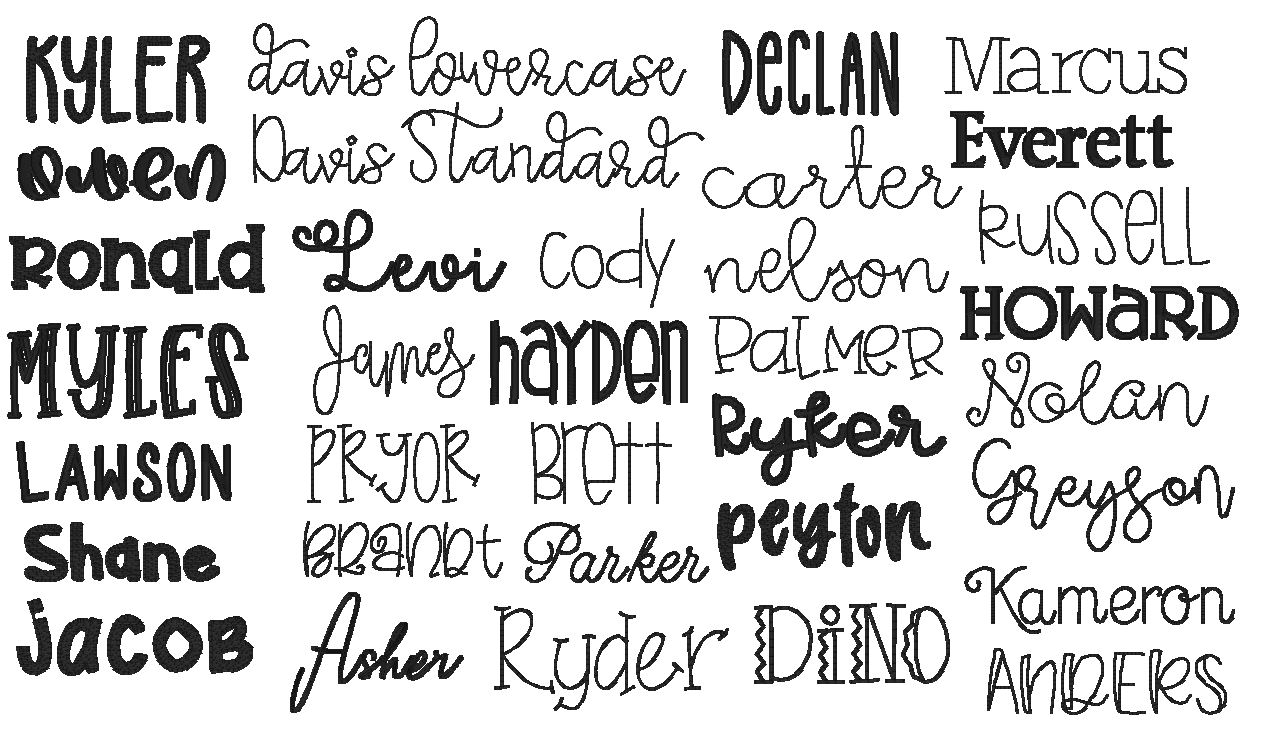 KYLER
owen
Ronald
MYLES
LAWSON
Shane
jacoB
davis lowercase
Davis Standard
Levi
cody
James
hayden
PRYOR
Brett
BRandt
Parker
Asher
Ryder
DECLAN
carter
nelson
PaLMeR
Ryker
peyton
DiNO
Marcus
Everett
RUSSELL
HOWaRD
Nolan
Greyson
Kameron
AnDERS